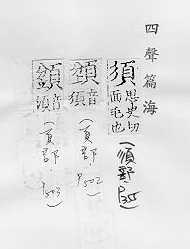 四聲篇海
須
思史切
面毛也
(須部
音
須
(頁部 P502)
音
須
(頁部 P503)